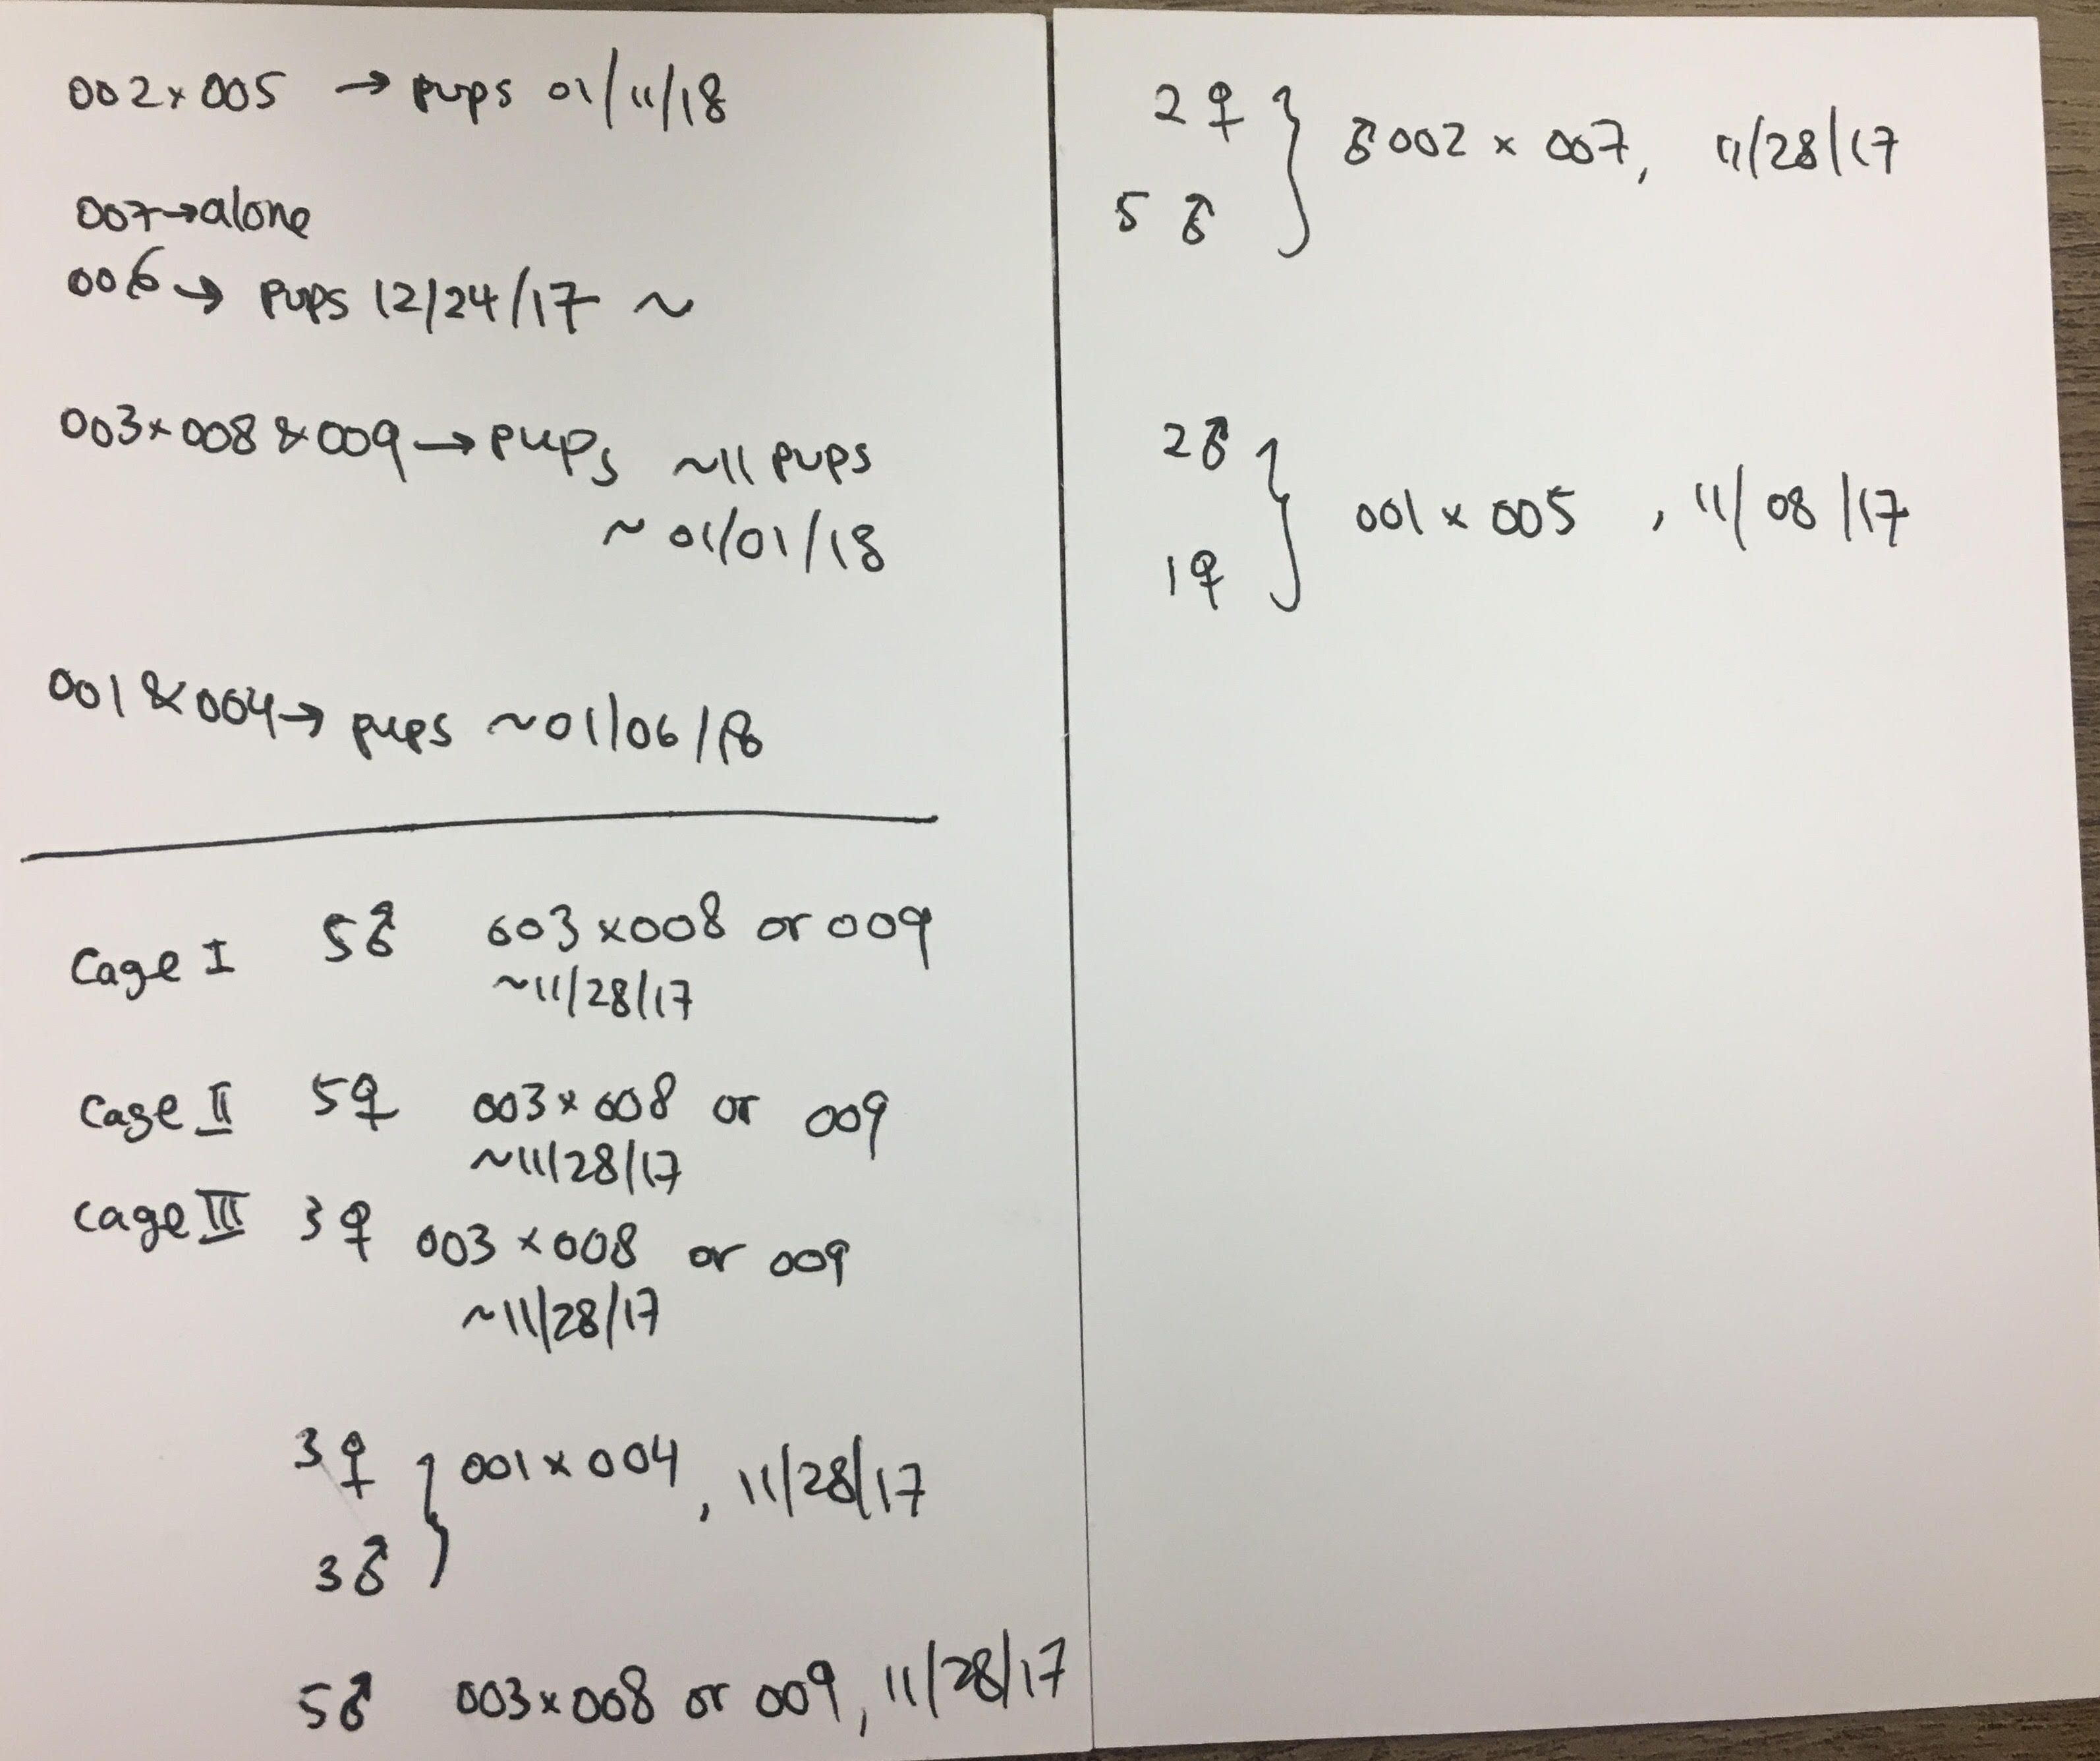 002 x 005 → pups 01/11/18
007 → alone
006 → pups 12/24/17 ~
003 x 008 & 009 → pups ~11 pups
~ 01/01/18
001 & 004 → pups ~01/06/18
Cage I 5♂ 003 x 008 or 009
~11/28/17
Cage II 5♀ 003 x 008 or 009
~11/28/17
Cage III 3♀ 003 x 008 or 009
~11/28/17
3♀
} 001 x 004, 11/28/17
3♂
5♂ 003 x 008 or 009, 11/28/17
2♀
} ♂002 x 007, 11/28/17
5♂
2♂
} 001 x 005, 11/08/17
1♀